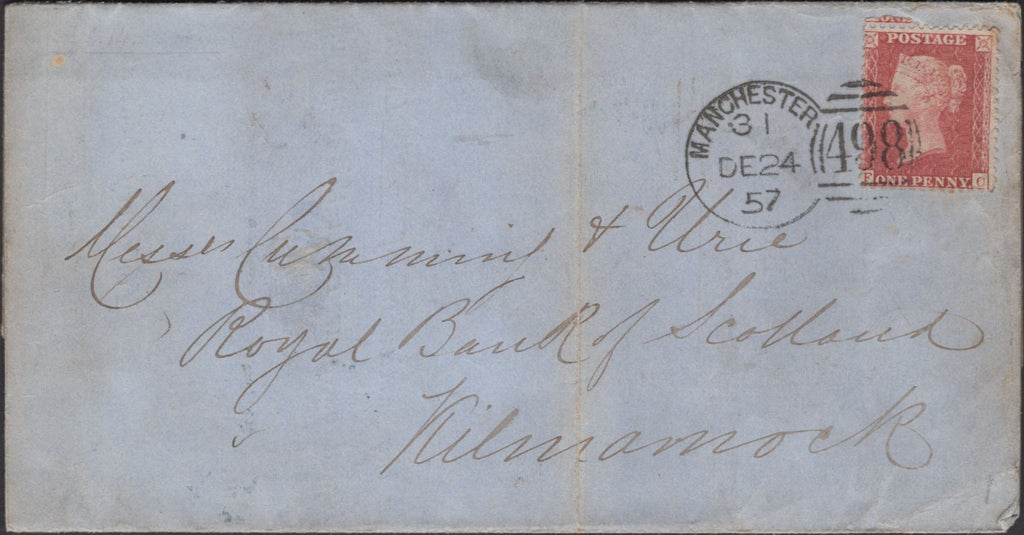 ONE
POSTAGE
F ONE PENNY. C
MANCHESTER
31
DE24
57
498
Messrs Cumming & Urie
Royal Bank of Scotland
Kilmarnock